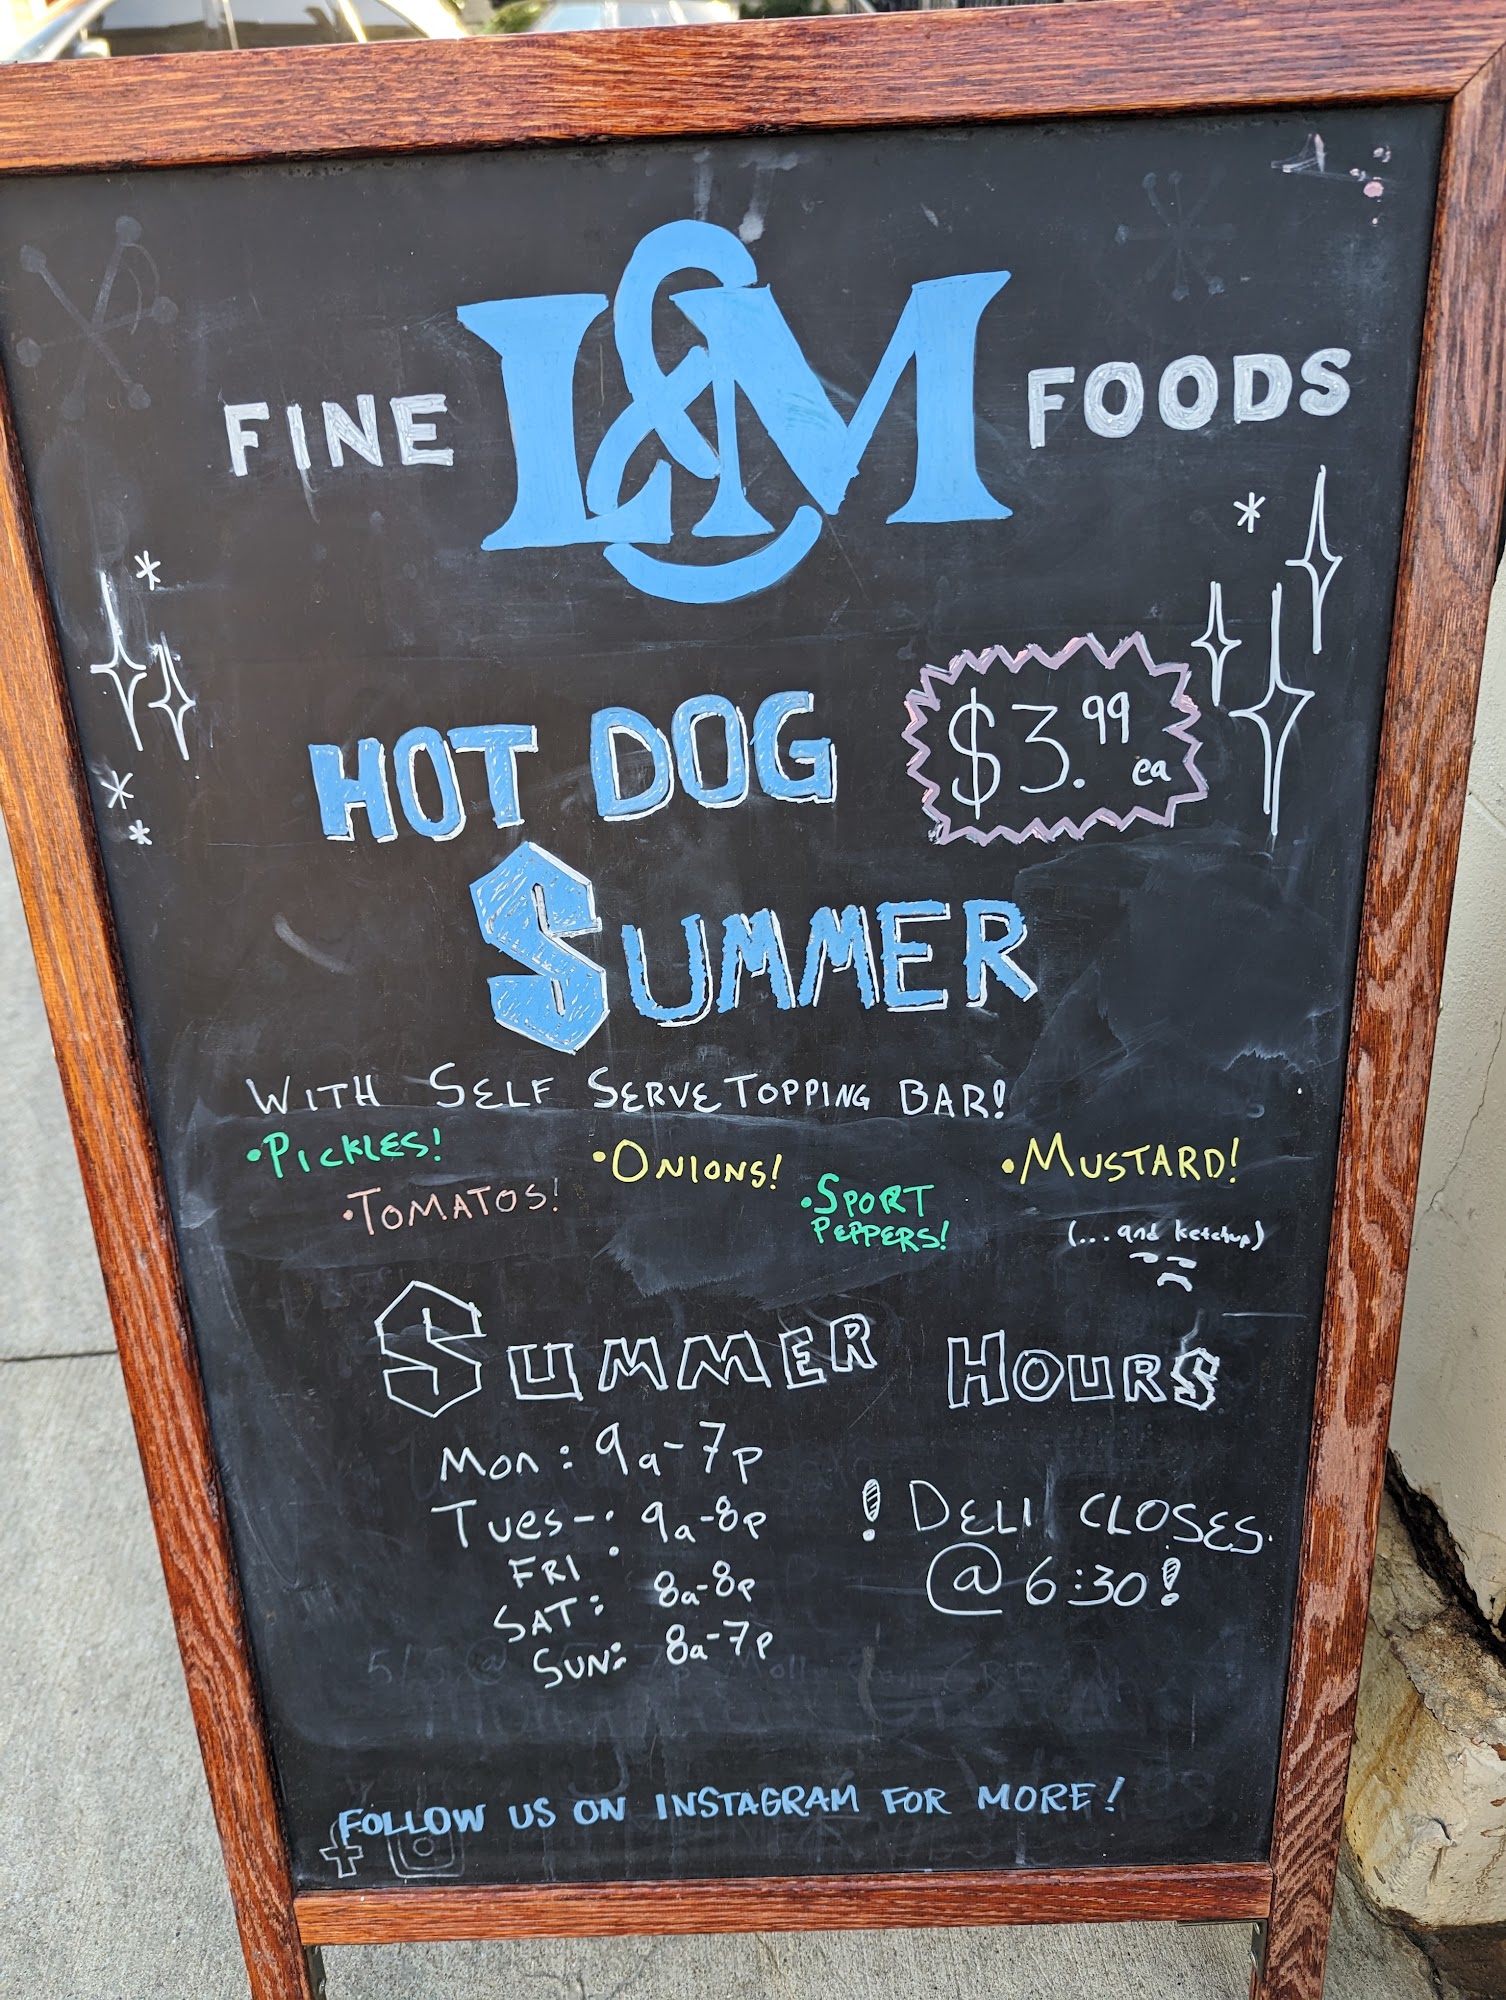 FINE L&M FOODS
HOT DOG $3.99 ea
SUMMER
WITH SELF SERVE TOPPING BAR!
•PICKLES! •ONIONS! •MUSTARD!
•TOMATOS! •SPORT PEPPERS!
(...and ketchup)
SUMMER HOURS
Mon: 9a-7p
TUES-FRI: 9a-8p
SAT: 8a-8p
SUN: 8a-7p
! DELI CLOSES
@ 6:30!
FOLLOW US ON INSTAGRAM FOR MORE!